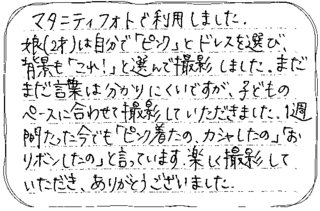 マタニティフォトで利用しました。
娘(2才)は自分で「ピンク」とドレスを選び、
背景も「これ!」と選んで撮影しました。まだ
まだ言葉は分かりにくいですが、子どもの
ペースに合わせて撮影していただきました。1週
間たった今でも「ピンク着たの、カシャしたの」「お
リボンしたの」と言っています。楽しく撮影して
いただき、ありがとうございました。